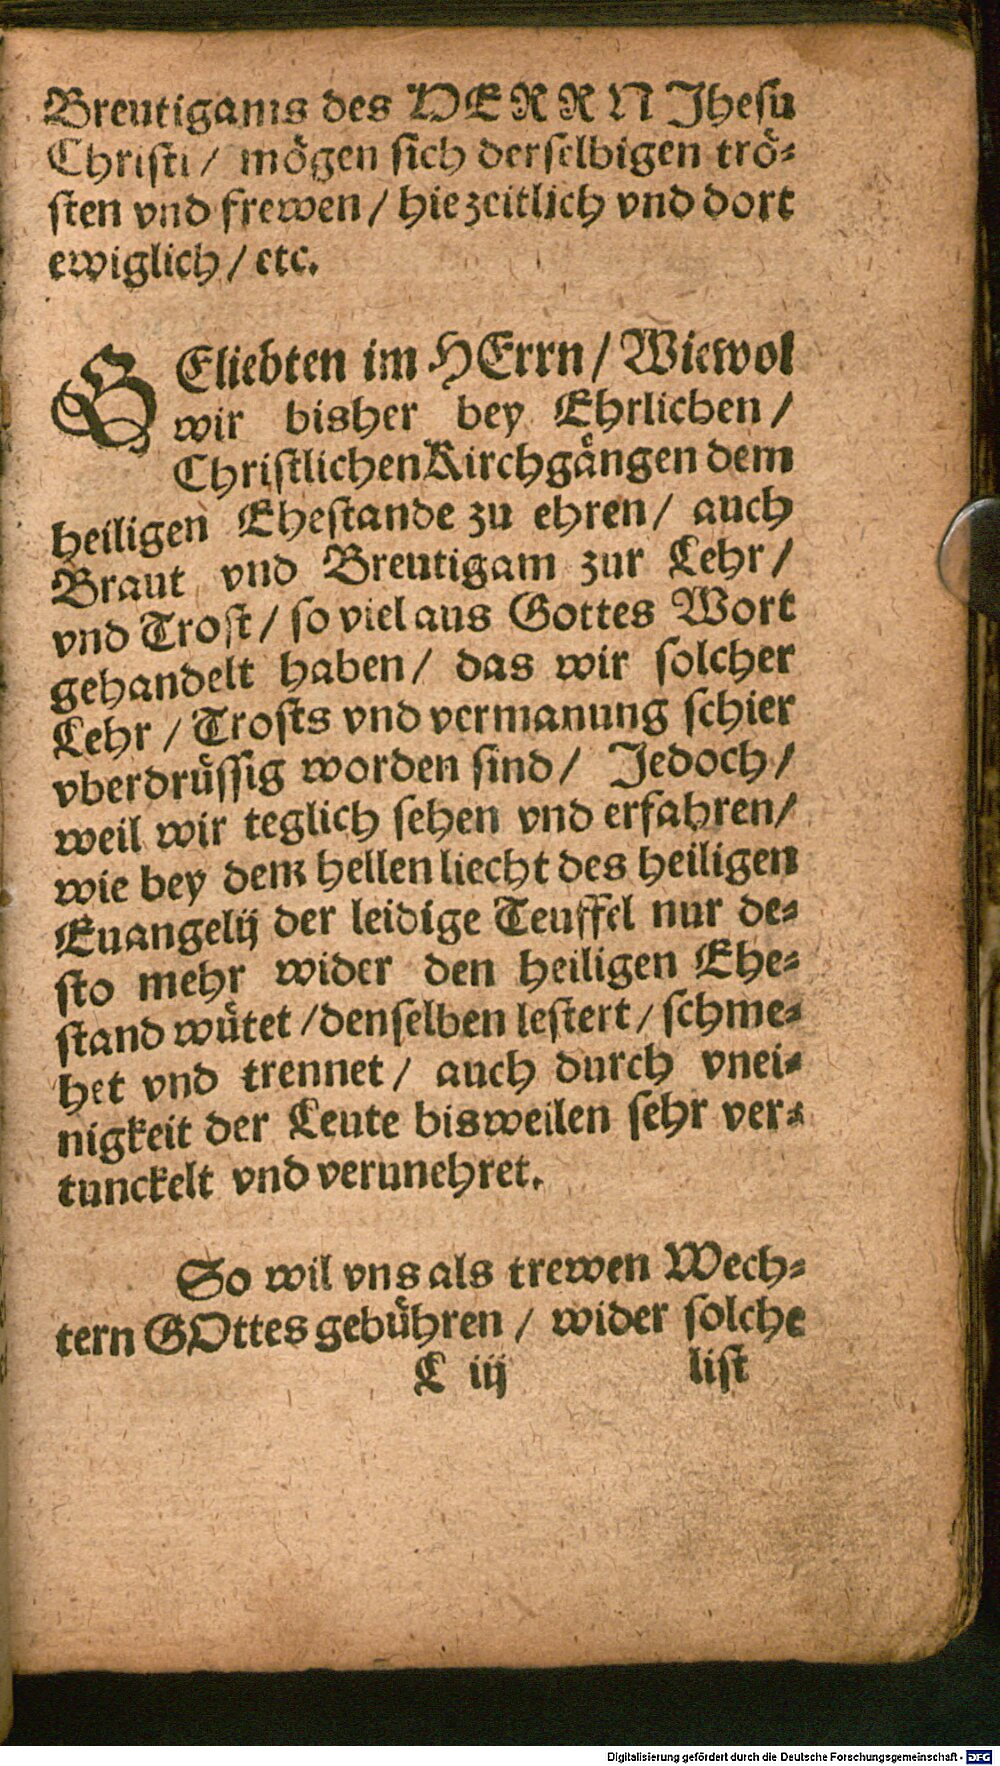 Breutigams des HERRN Jhesu
Christi / mögen sich derselbigen trö⸗
sten vnd frewen / hie zeitlich vnd dort
ewiglich / etc.
GEliebten im HErrn / Wiewol
wir bisher bey Ehrlichen /
Christlichen Kirchgängen dem
heiligen Ehestande zu ehren / auch
Braut vnd Breutigam zur Lehr /
vnd Trost / so viel aus Gottes Wort
gehandelt haben / das wir solcher
Lehr / Trosts vnd vermanung schier
vberdrüssig worden sind / Jedoch /
weil wir teglich sehen vnd erfahren /
wie bey dem hellen liecht des heiligen
Euangelij der leidige Teuffel nur de⸗
sto mehr wider den heiligen Ehe⸗
stand wütet / denselben lestert / schme⸗
het vnd trennet / auch durch vnei⸗
nigkeit der Leute bisweilen sehr ver⸗
tunckelt vnd verunehret.
So wil vns als trewen Wech⸗
tern GOttes gebühren / wider solche
C iij list
Digitalisierung gefördert durch die Deutsche Forschungsgemeinschaft - DFG